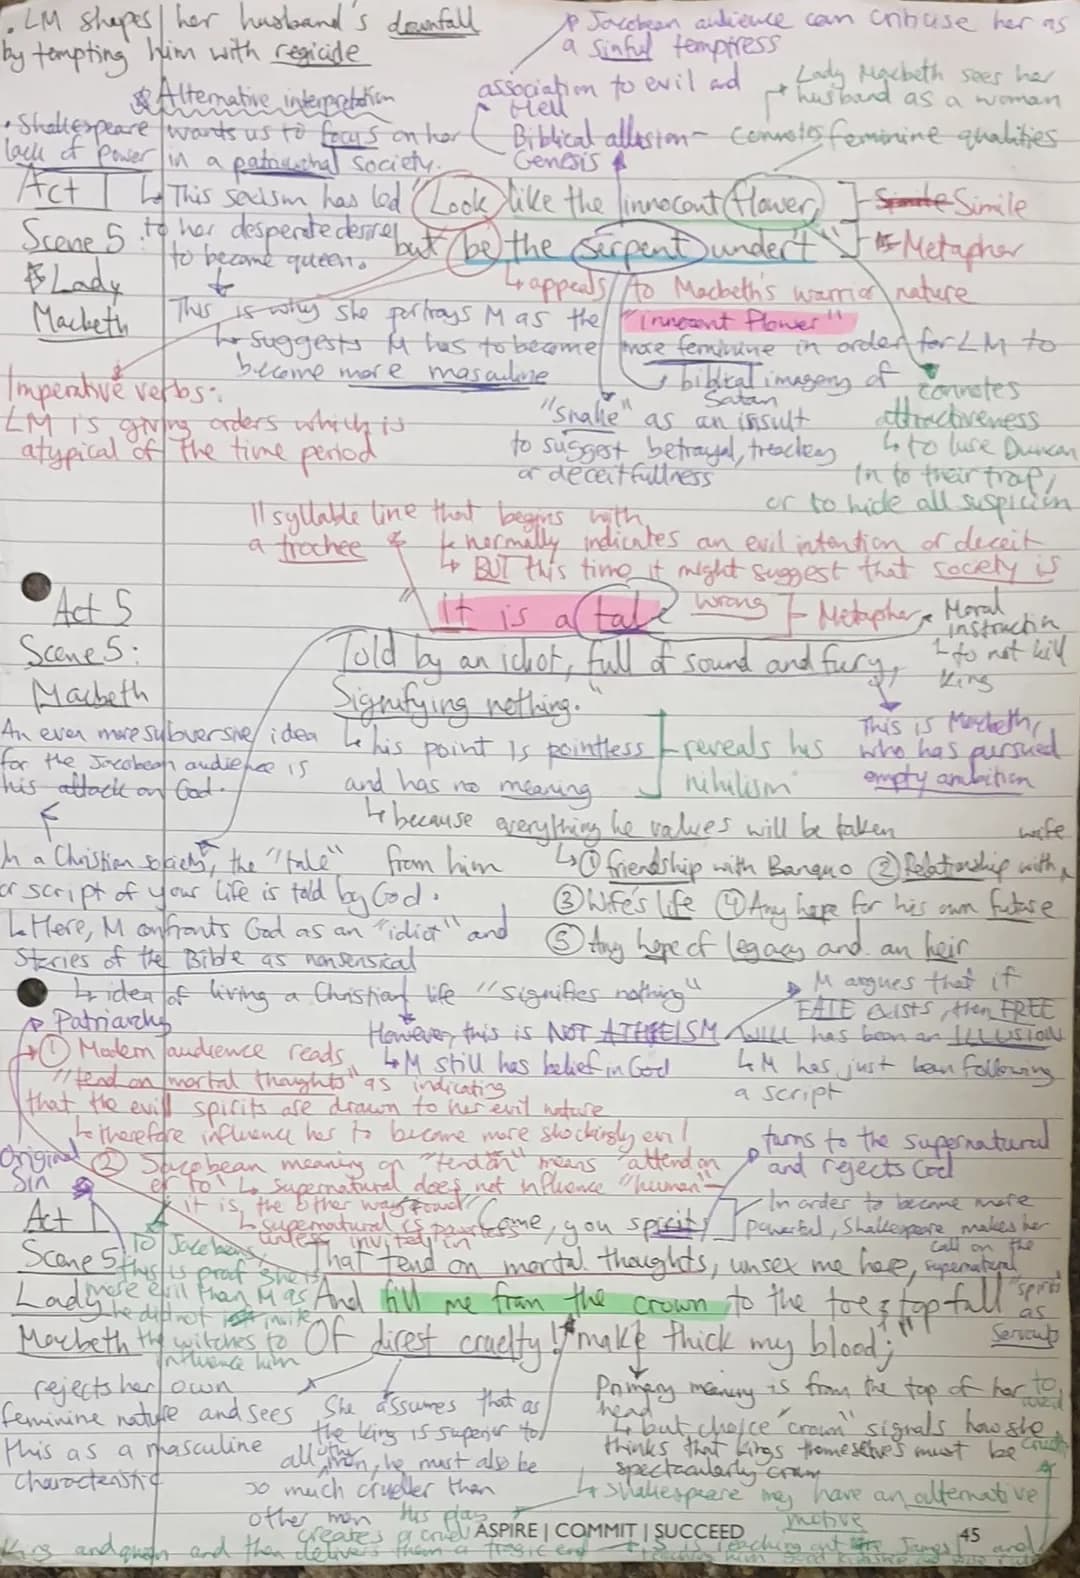 • LM shapes her husband's downfall
by tempting him with regicide
Jacobean audience can criticise her as
a sinful temptress
Alternative interpretation
• Shakespeare wants us to focus on her
lack of power in a patriarchal society.
↳ This sexism has led
to her desperate desire
to become queen.
association to evil and
Hell
Biblical allusion -
Genesis
Lady Macbeth sees her
husband as a woman
connotes feminine qualities
Act 1
Scene 5:
Lady
Macbeth
"Look like the innocent flower,
but be the serpent under't"
Simile
Metapher
↳ appeals to Macbeth's warrior nature
This is why she portrays M as the "innocent flower"
↳ suggests M has to become more feminine in order for LM to
become more masculine
Imperative verbs:
LM is giving orders which is
atypical of the time period
↳ biblical imagery of
Satan
"snake" as an insult
to suggest betrayal, treachery
or deceitfullness
connotes
attractiveness
↳ to lure Duncan
in to their trap,
or to hide all suspicion
11 syllable line that begins with
a trochee
↳ normally indicates an evil intention or deceit
↳ BUT this time it might suggest that society is
wrong
Act 5
Scene 5:
Macbeth
"It is a tale
Told by an idiot, full of sound and fury,
Signifying nothing."
Metapher
Moral
instruction
↳ to not kill
King
This is Macbeth,
who has pursued
empty ambition
An even more subversive idea
for the Jacobean audience is
his attack on God.
↳ his point is pointless
and has no meaning
reveals his
nihilism
↳ because everything he values will be taken
from him
↳ ① friendship with Banquo ② Relationship with wife
③ Wife's life ④ Any hope for his own future
⑤ Any hope of legacy and an heir
In a Christian society, the "tale"
or script of your life is told by God.
↳ Here, M confronts God as an "idiot" and
stories of the Bible as nonsensical
↳ idea of living a Christian life "signifies nothing"
However, this is NOT ATHEISM
↳ M still has belief in God
M argues that if
FATE exists, then FREE
WILL has been an ILLUSION
↳ M has just been following
a script
Patriarchy
① Modern audience reads
"tend on mortal thoughts" as indicating
that the evil spirits are drawn to her evil nature
↳ therefore influence her to become more shockingly evil
Original
Sin
② Jacobean meaning of "tend on" means "attend on
or to" ↳ supernatural does not influence "human"-
it is the other way round
↳ supernatural is powerless
unless invited in
turns to the supernatural
and rejects God
In order to become more
powerful, Shakespeare makes her
call on the
supernatural
"spirits"
as
servants
Act 1
Scene 5
Lady
Macbeth
"Come, you spirits
That tend on mortal thoughts, unsex me here,
And fill me from the crown to the toe top full
Of direst cruelty! make thick my blood;"
To Jacobeans,
this is proof she is
more evil than M as
he did not invite
the witches to
influence him
rejects her own
feminine nature and sees
this as a masculine
characteristic
She assumes that as
the king is superior to
all other men, he must also be
so much crueller than
other men
Primary meaning is from the top of her
head
↳ but choice "crown" signals how she
thinks that kings themselves must be
spectacularly cruel
↳ Shakespeare may have an alternative
motive
his play
creates a cruel
King and queen and then delivers them a tragic end
ASPIRE | COMMIT | SUCCEED
45